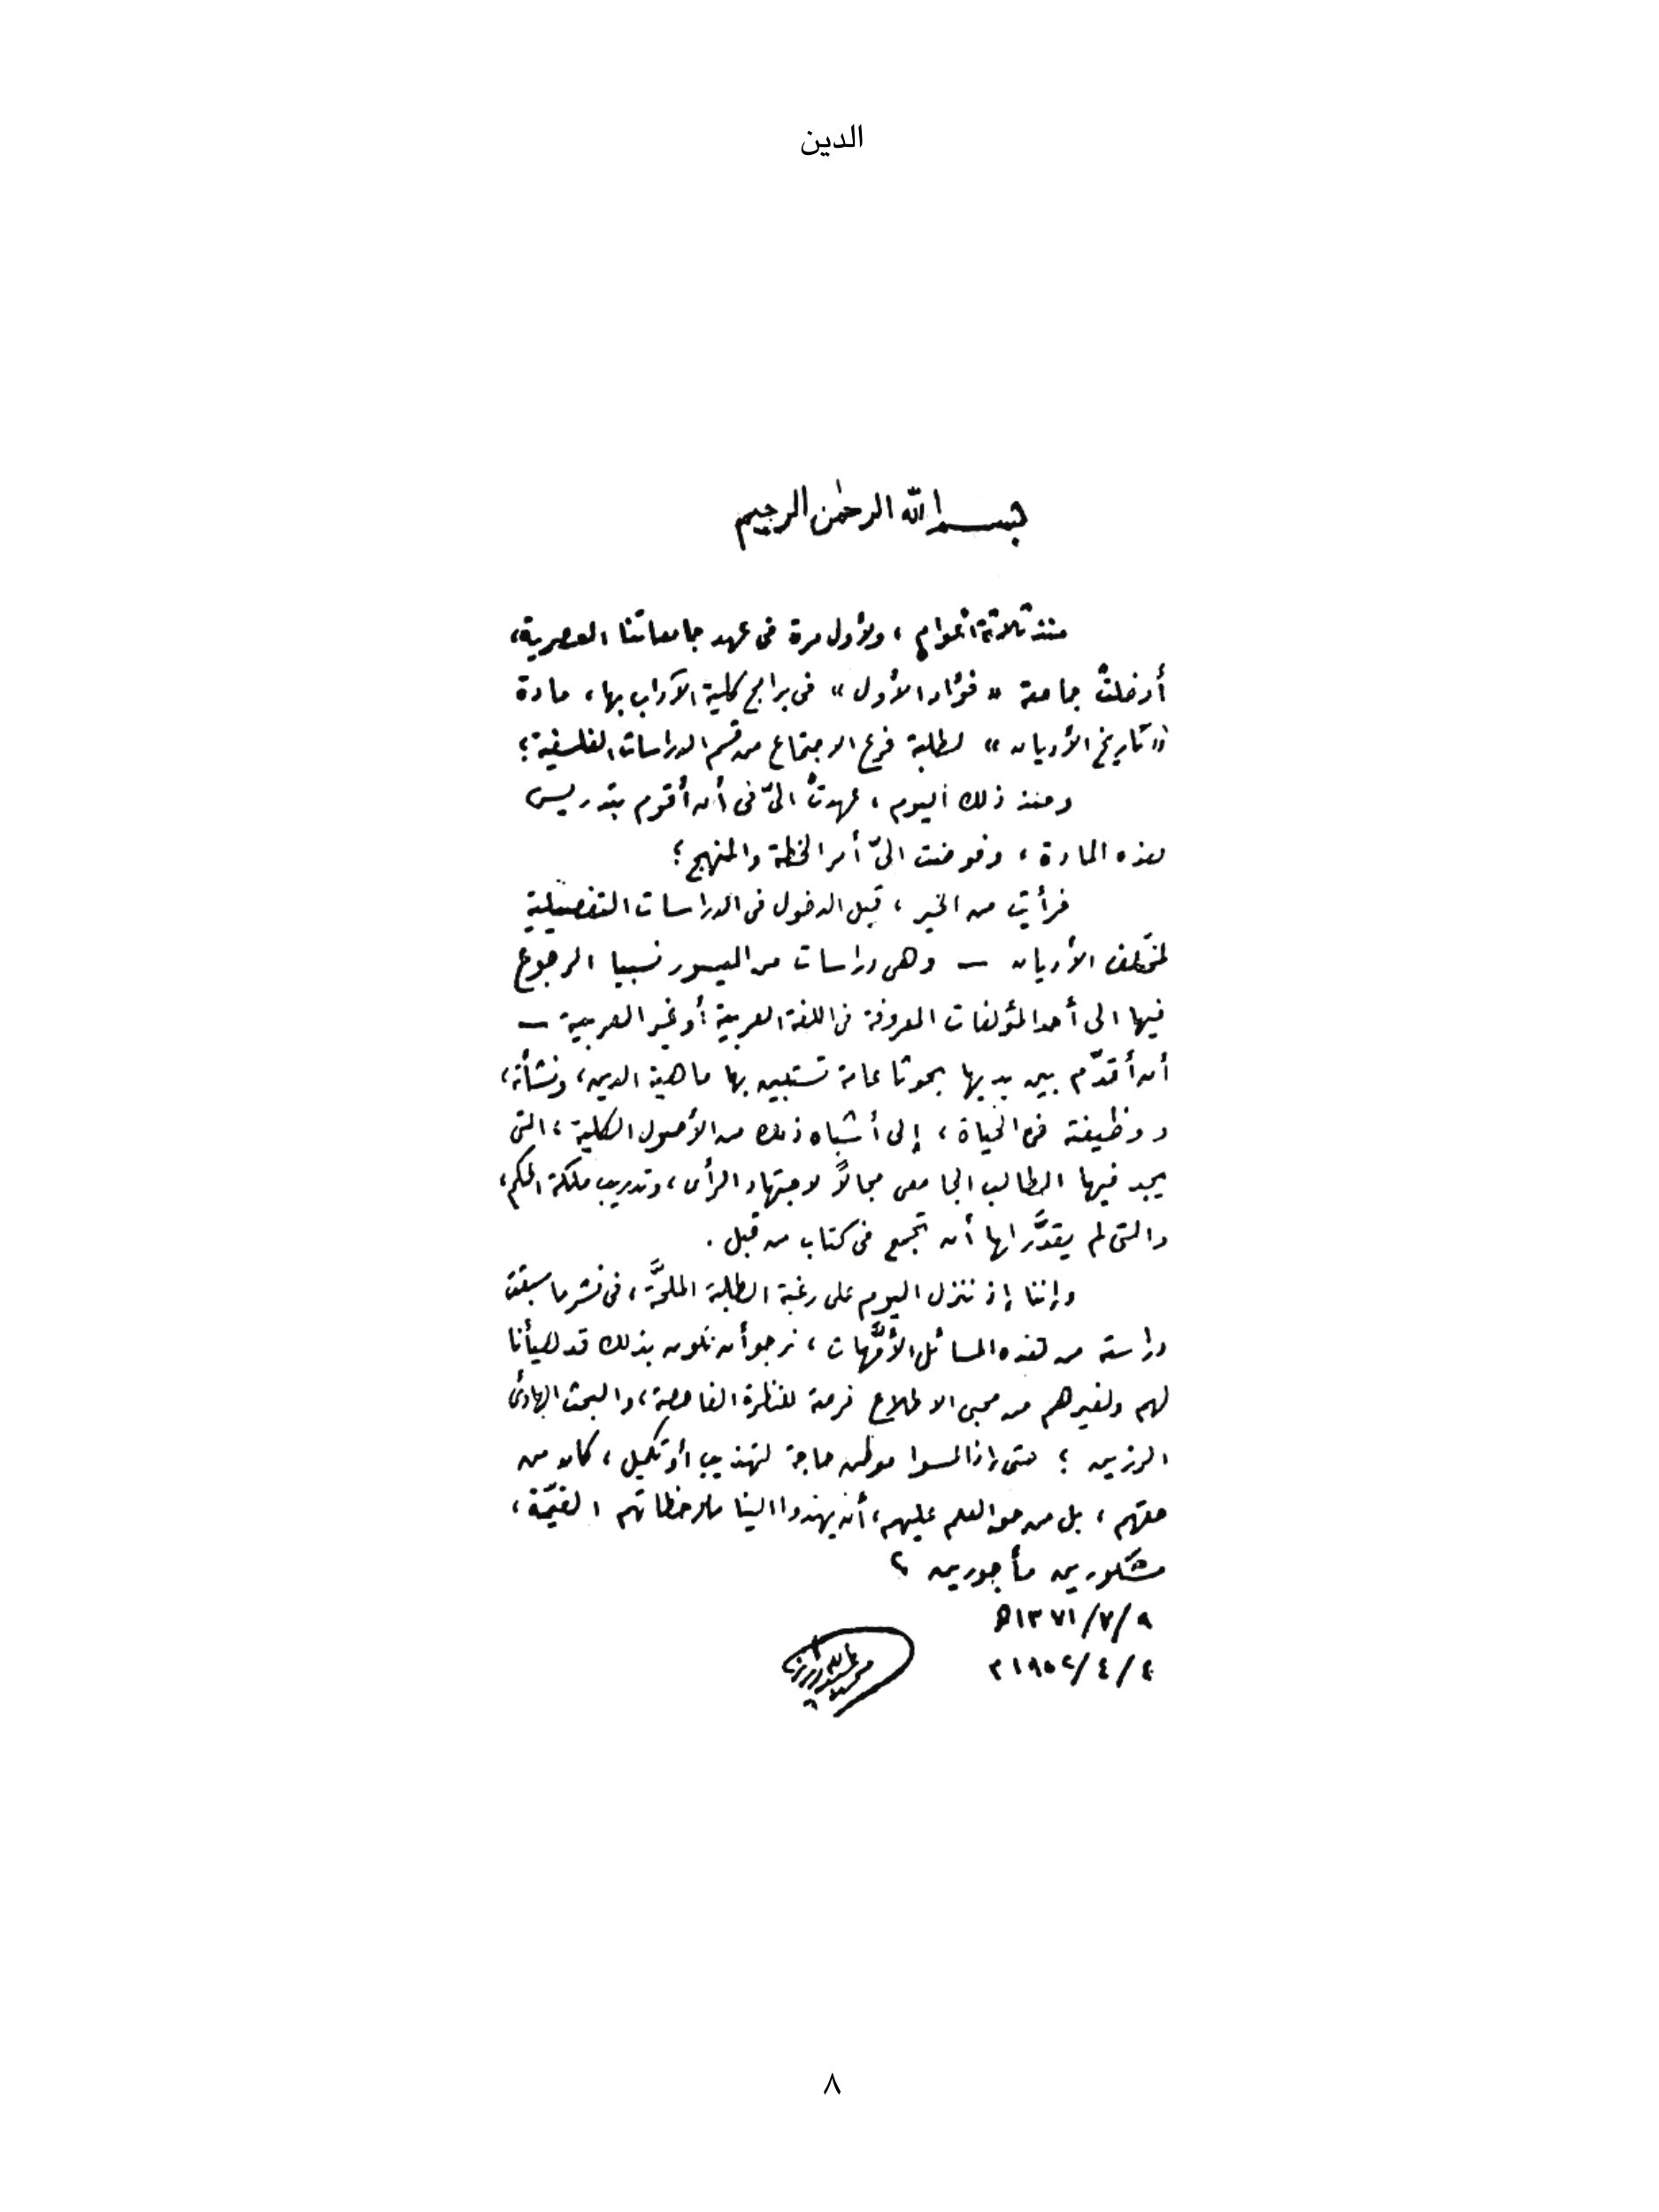 الدين
بسم الله الرحمن الرحيم
منذ ثلاثة أعوام ، ولأول مرة فى عهد جامعاتنا العصرية،
أدخلتْ جامعة « فؤاد الأول » فى برامج كلية الآداب بها، مادة
« تاريخ الأديان » لطلبة فرع الاجتماع من قسم الدراسات الفلسفية ؛
ومنذ ذلك اليوم ، عهدتْ الىّ فى أن أقوم بتدريس
هذه المادة ، وفوضت الىّ أمر الخطة والمنهج ؛
فرأيت من الخير ، قبل الدخول فى الدراسات التفصيلية
لمختلف الأديان — وهى دراسات من الميسور نسبيا الرجوع
فيها الى أحد المؤلفات المعروفة فى اللغة العربية أو غير العربية —
أن أقدّم بين يديها بحوثا عامة تستبين بها ماهية الدين، ونشأته،
ووظيفته فى الحياة ، إلى أشباه ذلك من الأصول الكلية ، التى
يجد فيها الطالب الجامعى مجالاً لاجتهاد الرأى ، وتدريب ملكة الحكم،
والتى لم يقدَّر لها أن تجمع فى كتاب من قبل .
وإننا إذ ننزل اليوم على رغبة الطلبة الملحَّة ، فى نشر ما سبقت
دراسته من هذه المسائل الأمَّهات ، نرجو أن نكون بذلك قد هيأنا
لهم ولغيرهم من محبى الاطلاع فرصة للنظرة الفاحصة ، والبحث الهادئ
الرزين ؛ حتى إذا لمسوا موطن حاجة لتهذيب أو تكميل ، كان من
حقهم ، بل من حق العلم عليهم ، أن يهدوا الينا ملاحظاتهم القيّمة ،
مشكورين مأجورين ،
٩/٧/١٣٧١ ه
٤/٤/١٩٥٢ م
محمد عبد الله دراز
٨